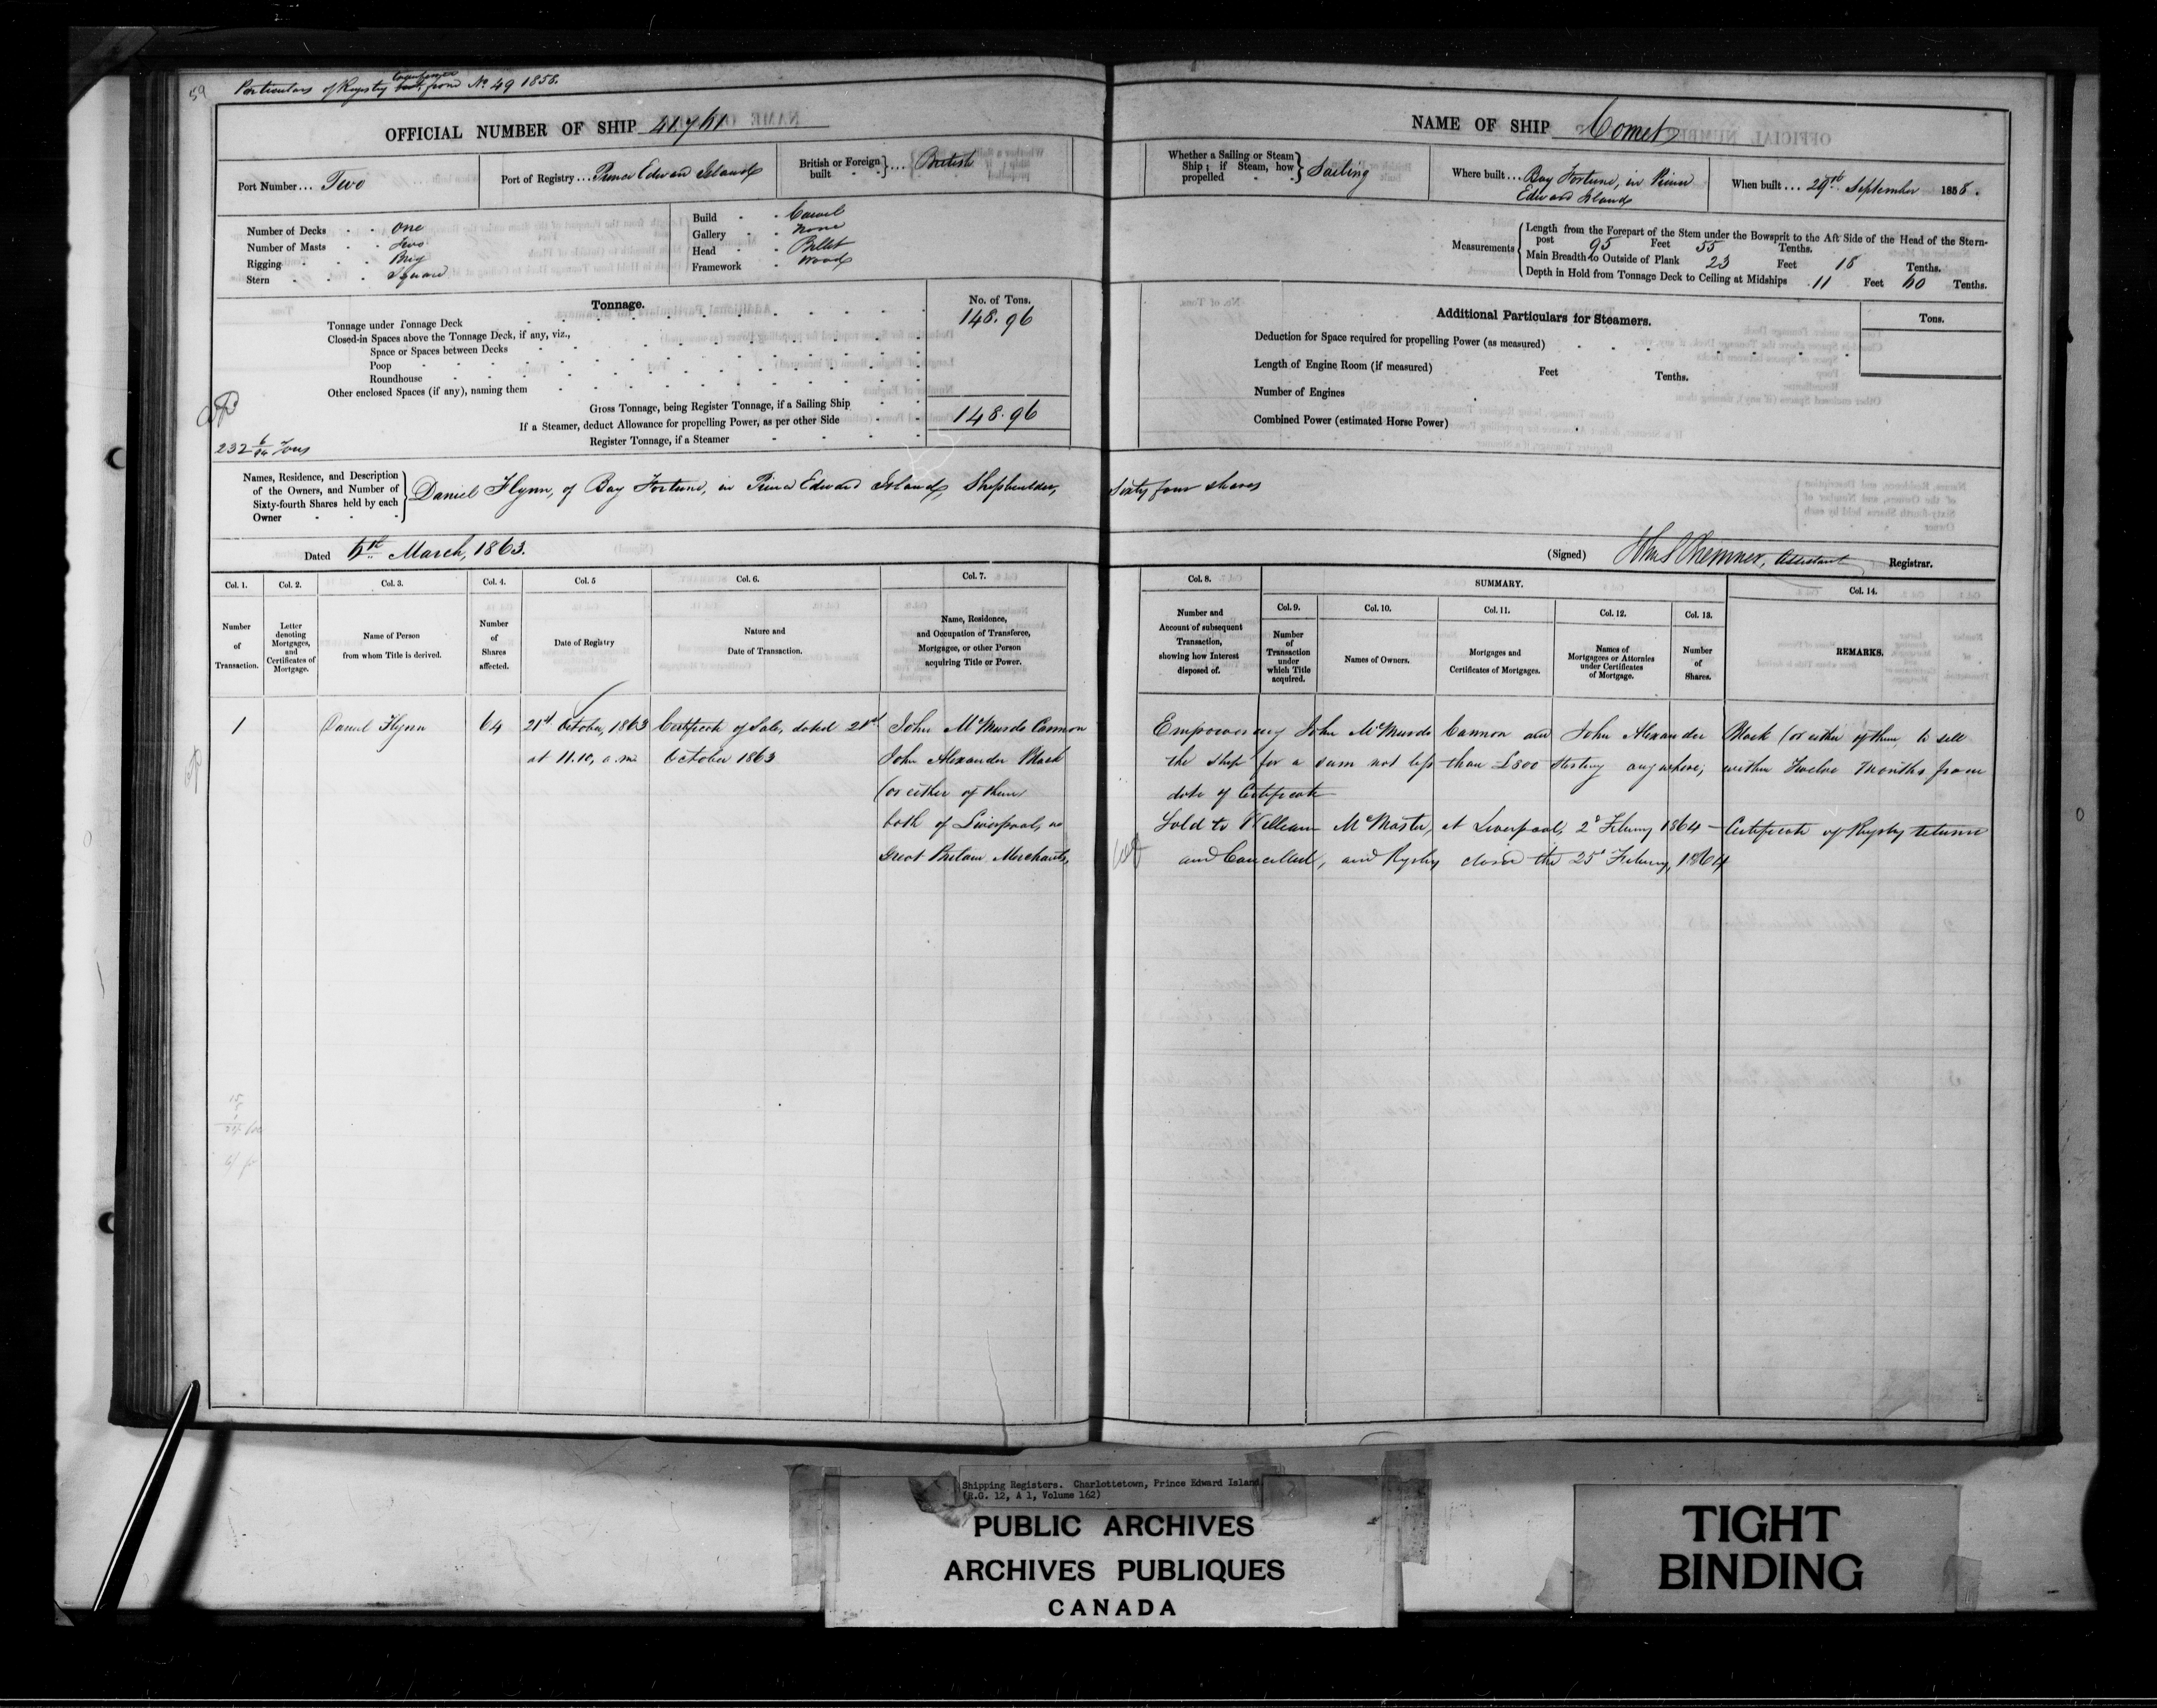 59
Particulars of Registry from No 49 1858.
OFFICIAL NUMBER OF SHIP 41761
Port Number... Two
Port of Registry... Prince Edward Island
British or Foreign built ... British
Number of Decks . . One
Number of Masts . . Two
Rigging . . . Brig
Stern . . . Square
Build . . Carvel
Gallery . . None
Head . . Billet
Framework . Wood
Tonnage.
No. of Tons.
Tonnage under Tonnage Deck 148.96
Closed-in Spaces above the Tonnage Deck, if any, viz.,
Space or Spaces between Decks
Poop
Roundhouse
Other enclosed Spaces (if any), naming them
Gross Tonnage, being Register Tonnage, if a Sailing Ship 148.96
If a Steamer, deduct Allowance for propelling Power, as per other Side
Register Tonnage, if a Steamer
232 Tons
Names, Residence, and Description of the Owners, and Number of Sixty-fourth Shares held by each Owner
Daniel Flynn, of Bay Fortune, in Prince Edward Island, Shipbuilder,
Dated March, 1863.
Col. 1. Col. 2. Col. 3. Col. 4. Col. 5 Col. 6. Col. 7.
Number of Transaction.
Letter denoting Mortgages, and Certificates of Mortgage.
Name of Person from whom Title is derived.
Number of Shares affected.
Date of Registry
Nature and Date of Transaction.
Name, Residence, and Occupation of Transferee, Mortgagee, or other Person acquiring Title or Power.
1 Daniel Flynn 64 21st October, 1863 Certificate of Sale, dated 21st John McMurdo Cannon
at 11.10, a.m. October 1863 John Alexander Mack
(or either of them)
both of Liverpool, in
Great Britain Merchants,
NAME OF SHIP Comet
Whether a Sailing or Steam Ship; if Steam, how propelled Sailing
Where built... Bay Fortune, in Prince
Edward Island
When built... 29th September 1858.
Measurements
Length from the Forepart of the Stem under the Bowsprit to the Aft Side of the Head of the Stern-
post 95 Feet 55 Tenths.
Main Breadth to Outside of Plank 23 Feet 18 Tenths.
Depth in Hold from Tonnage Deck to Ceiling at Midships 11 Feet 60 Tenths.
Additional Particulars for Steamers.
Tons.
Deduction for Space required for propelling Power (as measured)
Length of Engine Room (if measured) Feet Tenths.
Number of Engines
Combined Power (estimated Horse Power)
Sixty four shares
(Signed) Assistant Registrar.
Col. 8. SUMMARY. Col. 14.
Col. 9. Col. 10. Col. 11. Col. 12. Col. 13.
Number and Account of subsequent Transaction, showing how Interest disposed of.
Number of Transaction under which Title acquired.
Names of Owners.
Mortgages and Certificates of Mortgages.
Names of Mortgagees or Attornies under Certificates of Mortgage.
Number of Shares.
REMARKS.
Empowering John McMurdo Cannon and John Alexander Mack (or either of them) to sell
the Ship for a sum not less than £800 Sterling anywhere, within Twelve Months from
date of Certificate
Sold to William McMaster, at Liverpool, 2d February 1864 – Certificate of Registry returned
and Cancelled, and Registry closed the 25th February, 1864
Shipping Registers. Charlottetown, Prince Edward Island
(R.G. 12, A 1, Volume 162)
PUBLIC ARCHIVES
ARCHIVES PUBLIQUES
CANADA
TIGHT
BINDING